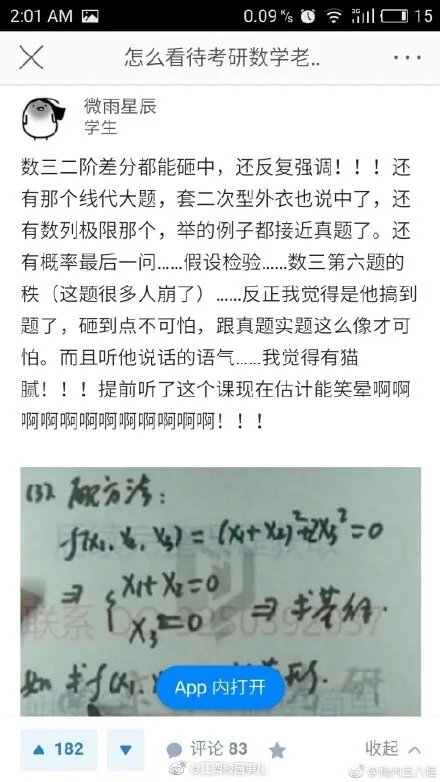 2:01 AM
0.09 K/s
3G
15
怎么看待考研数学老..
微雨星辰
学生
数三二阶差分都能砸中，还反复强调！！！还
有那个线代大题，套二次型外衣也说中了，还
有数列极限那个，举的例子都接近真题了。还
有概率最后一问……假设检验……数三第六题的
秩（这题很多人崩了）……反正我觉得是他搞到
题了，砸到点不可怕，跟真题实题这么像才可
怕。而且听他说话的语气……我觉得有猫
腻！！！提前听了这个课现在估计能笑晕啊啊
啊啊啊啊啊啊啊啊啊啊！！！
(3) 配方法:
f(x₁, x₂, x₃) = (x₁+x₂)²+2x₃²=0
⇒ { x₁+x₂=0
x₃=0 ⇒ 求基础
联系 QQ
求f(x₁,
App 内打开
182
评论 83
收起
@江西校园事儿
@扬州五八怪